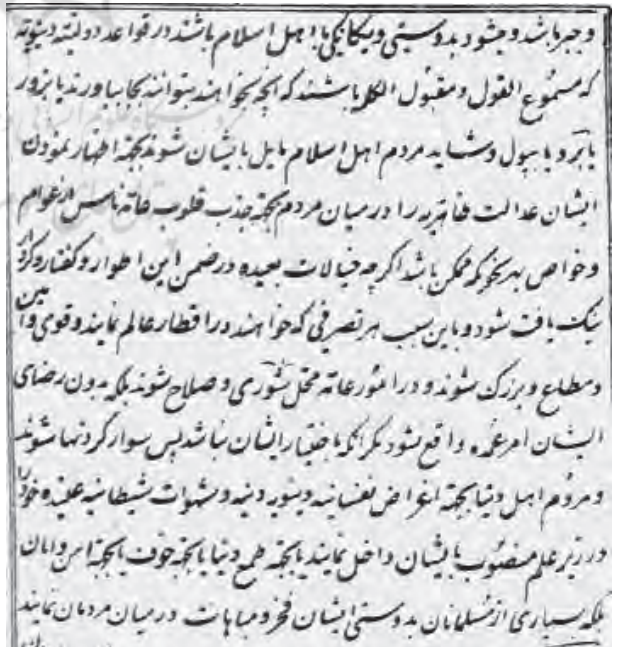 و جبر باشد و میشود بدوستی و یکانکی با اهل اسلام باشند در قواعد دولتیه دنیویه
که مسموع القول و مقبول الکل باشند که آنچه بخواهند بتوانند بجا بیاورند یا بزور
یا بزر و یا بپول و شاید مردم اهل اسلام مایل بایشان شوند بجهة اظهار نمودن
ایشان عدالت ظاهریه را در میان مردم بجهة جذب قلوب عامه ناس از عوام
و خواص بهر نحو که ممکن باشد اکرچه خیالات بعیده در ضمن این اطوار و کفتار و کردار
نیک یافت شود و باین سبب هر تصرفی که خواهند در اقطار عالم نمایند و قوی و امین
و مطاع و بزرک شوند و در امور عامه محل شوری و صلاح شوند بلکه بدون رضای
ایشان امر عمده واقع نشود مکر آنکه باختیار ایشان باشد پس سوار کردنها شوند
و مردم اهل دنیا بجهة اغراض نفسانیه دنیویه دنیه و شهوات شیطانیه عقیده خود را
در زیر علم منصوب بایشان داخل نمایند یا بجهة طمع دنیا یا بجهة خوف یا بجهة امن و امان
بلکه بسیاری از مسلمانان بدوستی ایشان فخر و مباهات در میان مردمان نمایند